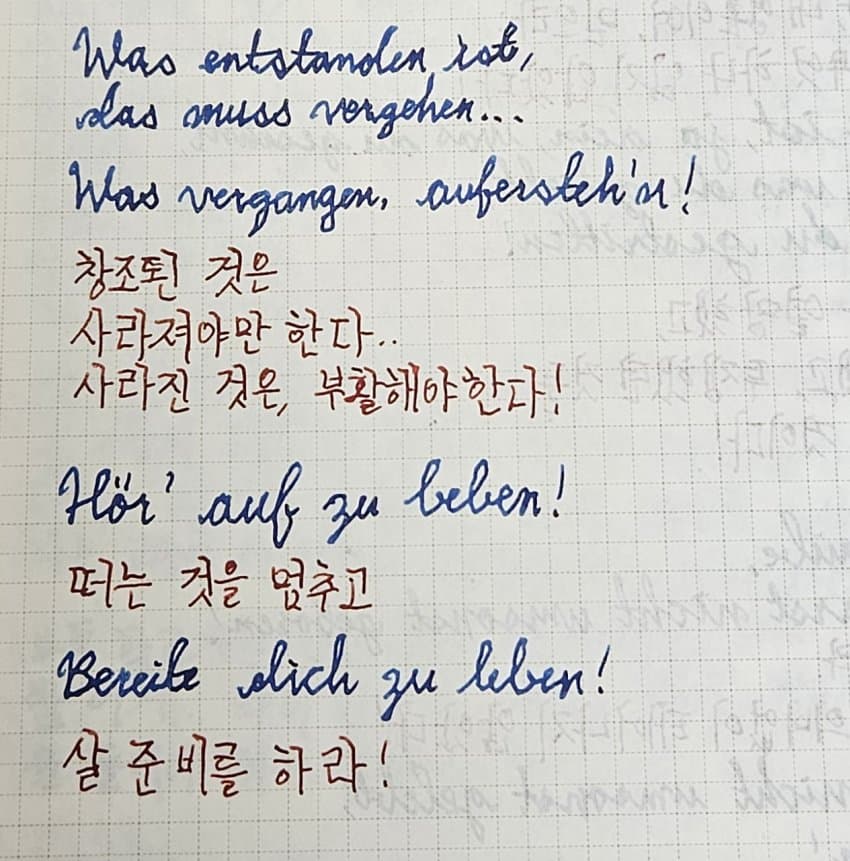 Was entstanden ist,
das muss vergehen...
Was vergangen, aufersteh'n!
창조된 것은
사라져야만 한다..
사라진 것은, 부활해야한다!
Hör' auf zu beben!
떠는 것을 멈추고
Bereite dich zu leben!
살 준비를 하라!